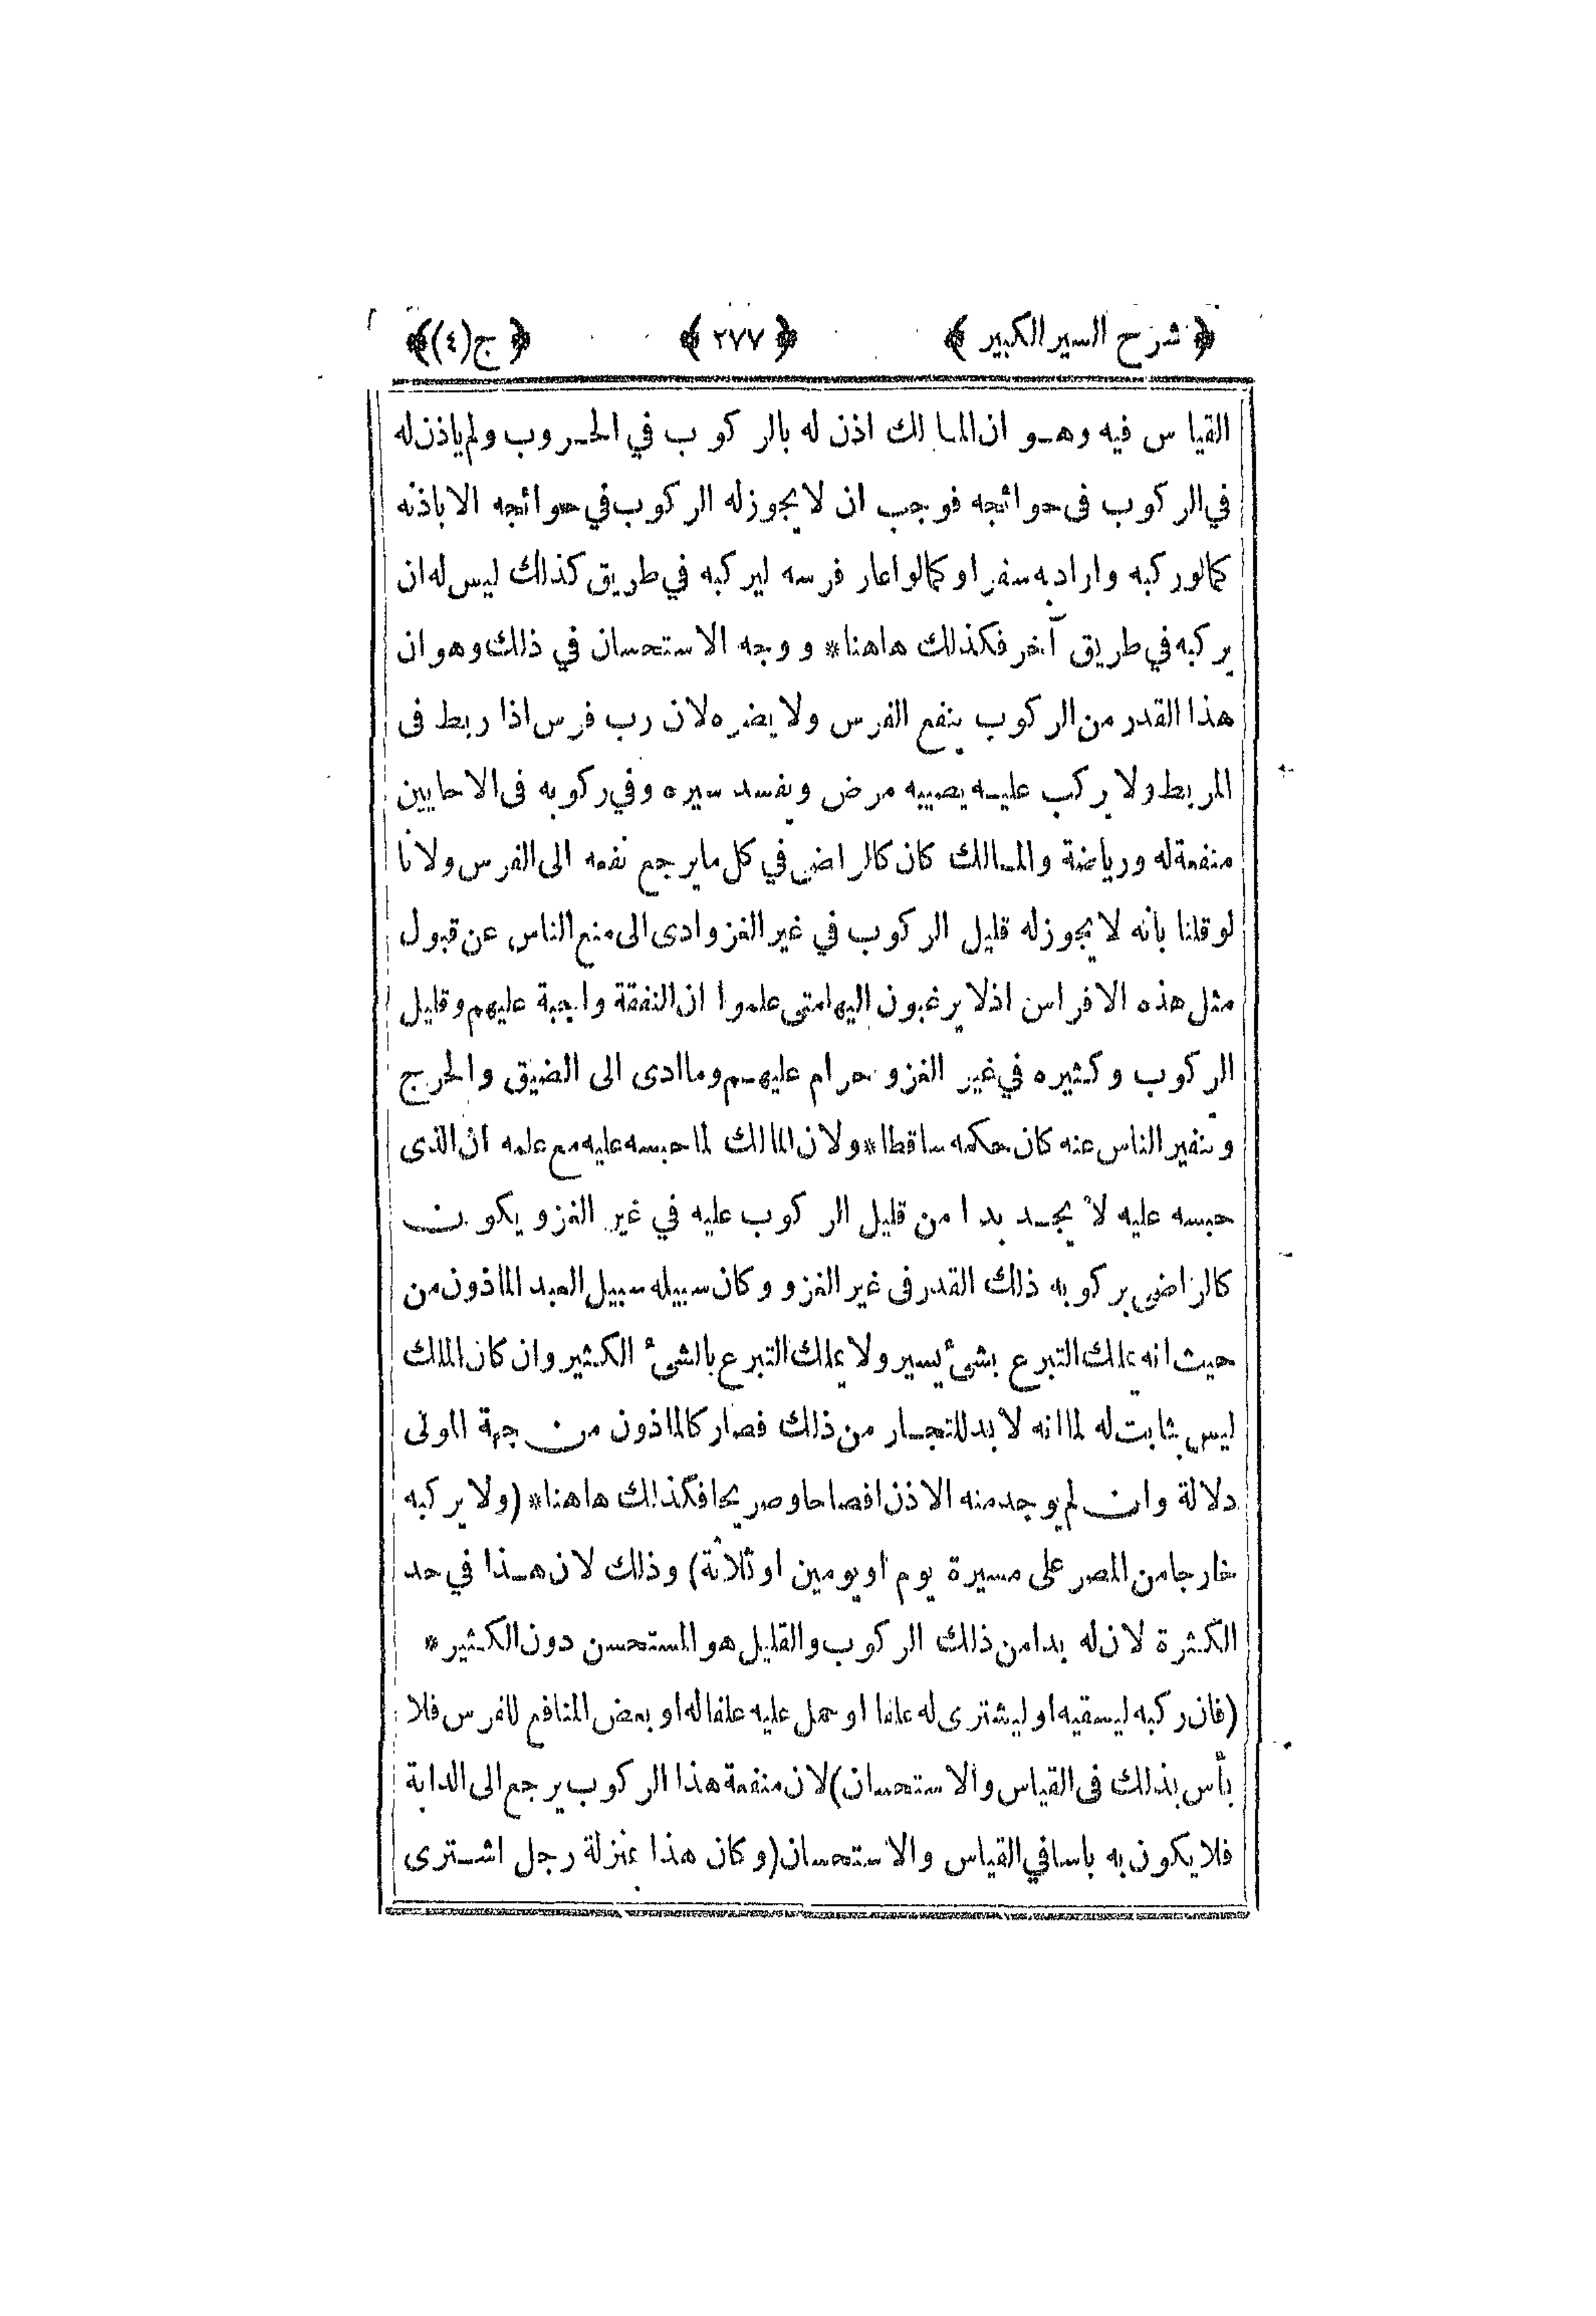 ﴿ شرح السير الكبير ﴾ ﴿ ٢٧٧ ﴾ ﴿ ج(٤)﴾
القياس فيه وهو ان المالك اذن له بالركوب في الحروب ولم ياذن له
في الركوب فى حوائجه فوجب ان لا يجوز له الركوب في حوائجه الا باذنه
كما لو ركبه واراد به سفرا او كما لو اعار فرسه ليركبه في طريق كذلك ليس له ان
يركبه في طريق آخر فكذلك هاهنا* ووجه الاستحسان في ذلك وهو ان
هذا القدر من الركوب ينفع الفرس ولا يضره لان رب فرس اذا ربط فى
المربط ولا يركب عليه يصيبه مرض ويفسد سيره وفي ركوبه فى الاحايين
منفعة له ورياضة والمالك كان كالراضي في كل ما يرجع نفعه الى الفرس ولانا
لو قلنا بأنه لا يجوز له قليل الركوب في غير الغزو ادى الى منع الناس عن قبول
مثل هذه الافراس اذ لا يرغبون اليها متى علموا ان النفقة واجبة عليهم وقليل
الركوب وكثيره في غير الغزو حرام عليهم وما ادى الى الضيق والحرج
وتنفير الناس عنه كان حكمه ساقطا* ولان المالك لما حبسه عليه مع علمه ان الذى
حبسه عليه لا يجد بدا من قليل الركوب عليه في غير الغزو يكون
كالراضي بركوبه ذلك القدر فى غير الغزو وكان سبيله سبيل العبد الماذون من
حيث انه يملك التبرع بشئ يسير ولا يملك التبرع بالشئ الكثير وان كان الملك
ليس بثابت له لما انه لا بد للتجار من ذلك فصار كالماذون من جهة المولى
دلالة وان لم يوجد منه الاذن افصاحا وصريحا فكذلك هاهنا* (ولا يركبه
خارجا من المصر على مسيرة يوم او يومين او ثلاثة) وذلك لان هذا في حد
الكثرة لان له بدا من ذلك الركوب والقليل هو المستحسن دون الكثير*
(فان ركبه ليسقيه او ليشترى له علفا او حمل عليه علفا له او بعض المنافع للفرس فلا
بأس بذلك فى القياس والاستحسان) لان منفعة هذا الركوب يرجع الى الدابة
فلا يكون به باسا في القياس والاستحسان (وكان هذا بمنزلة رجل اشترى